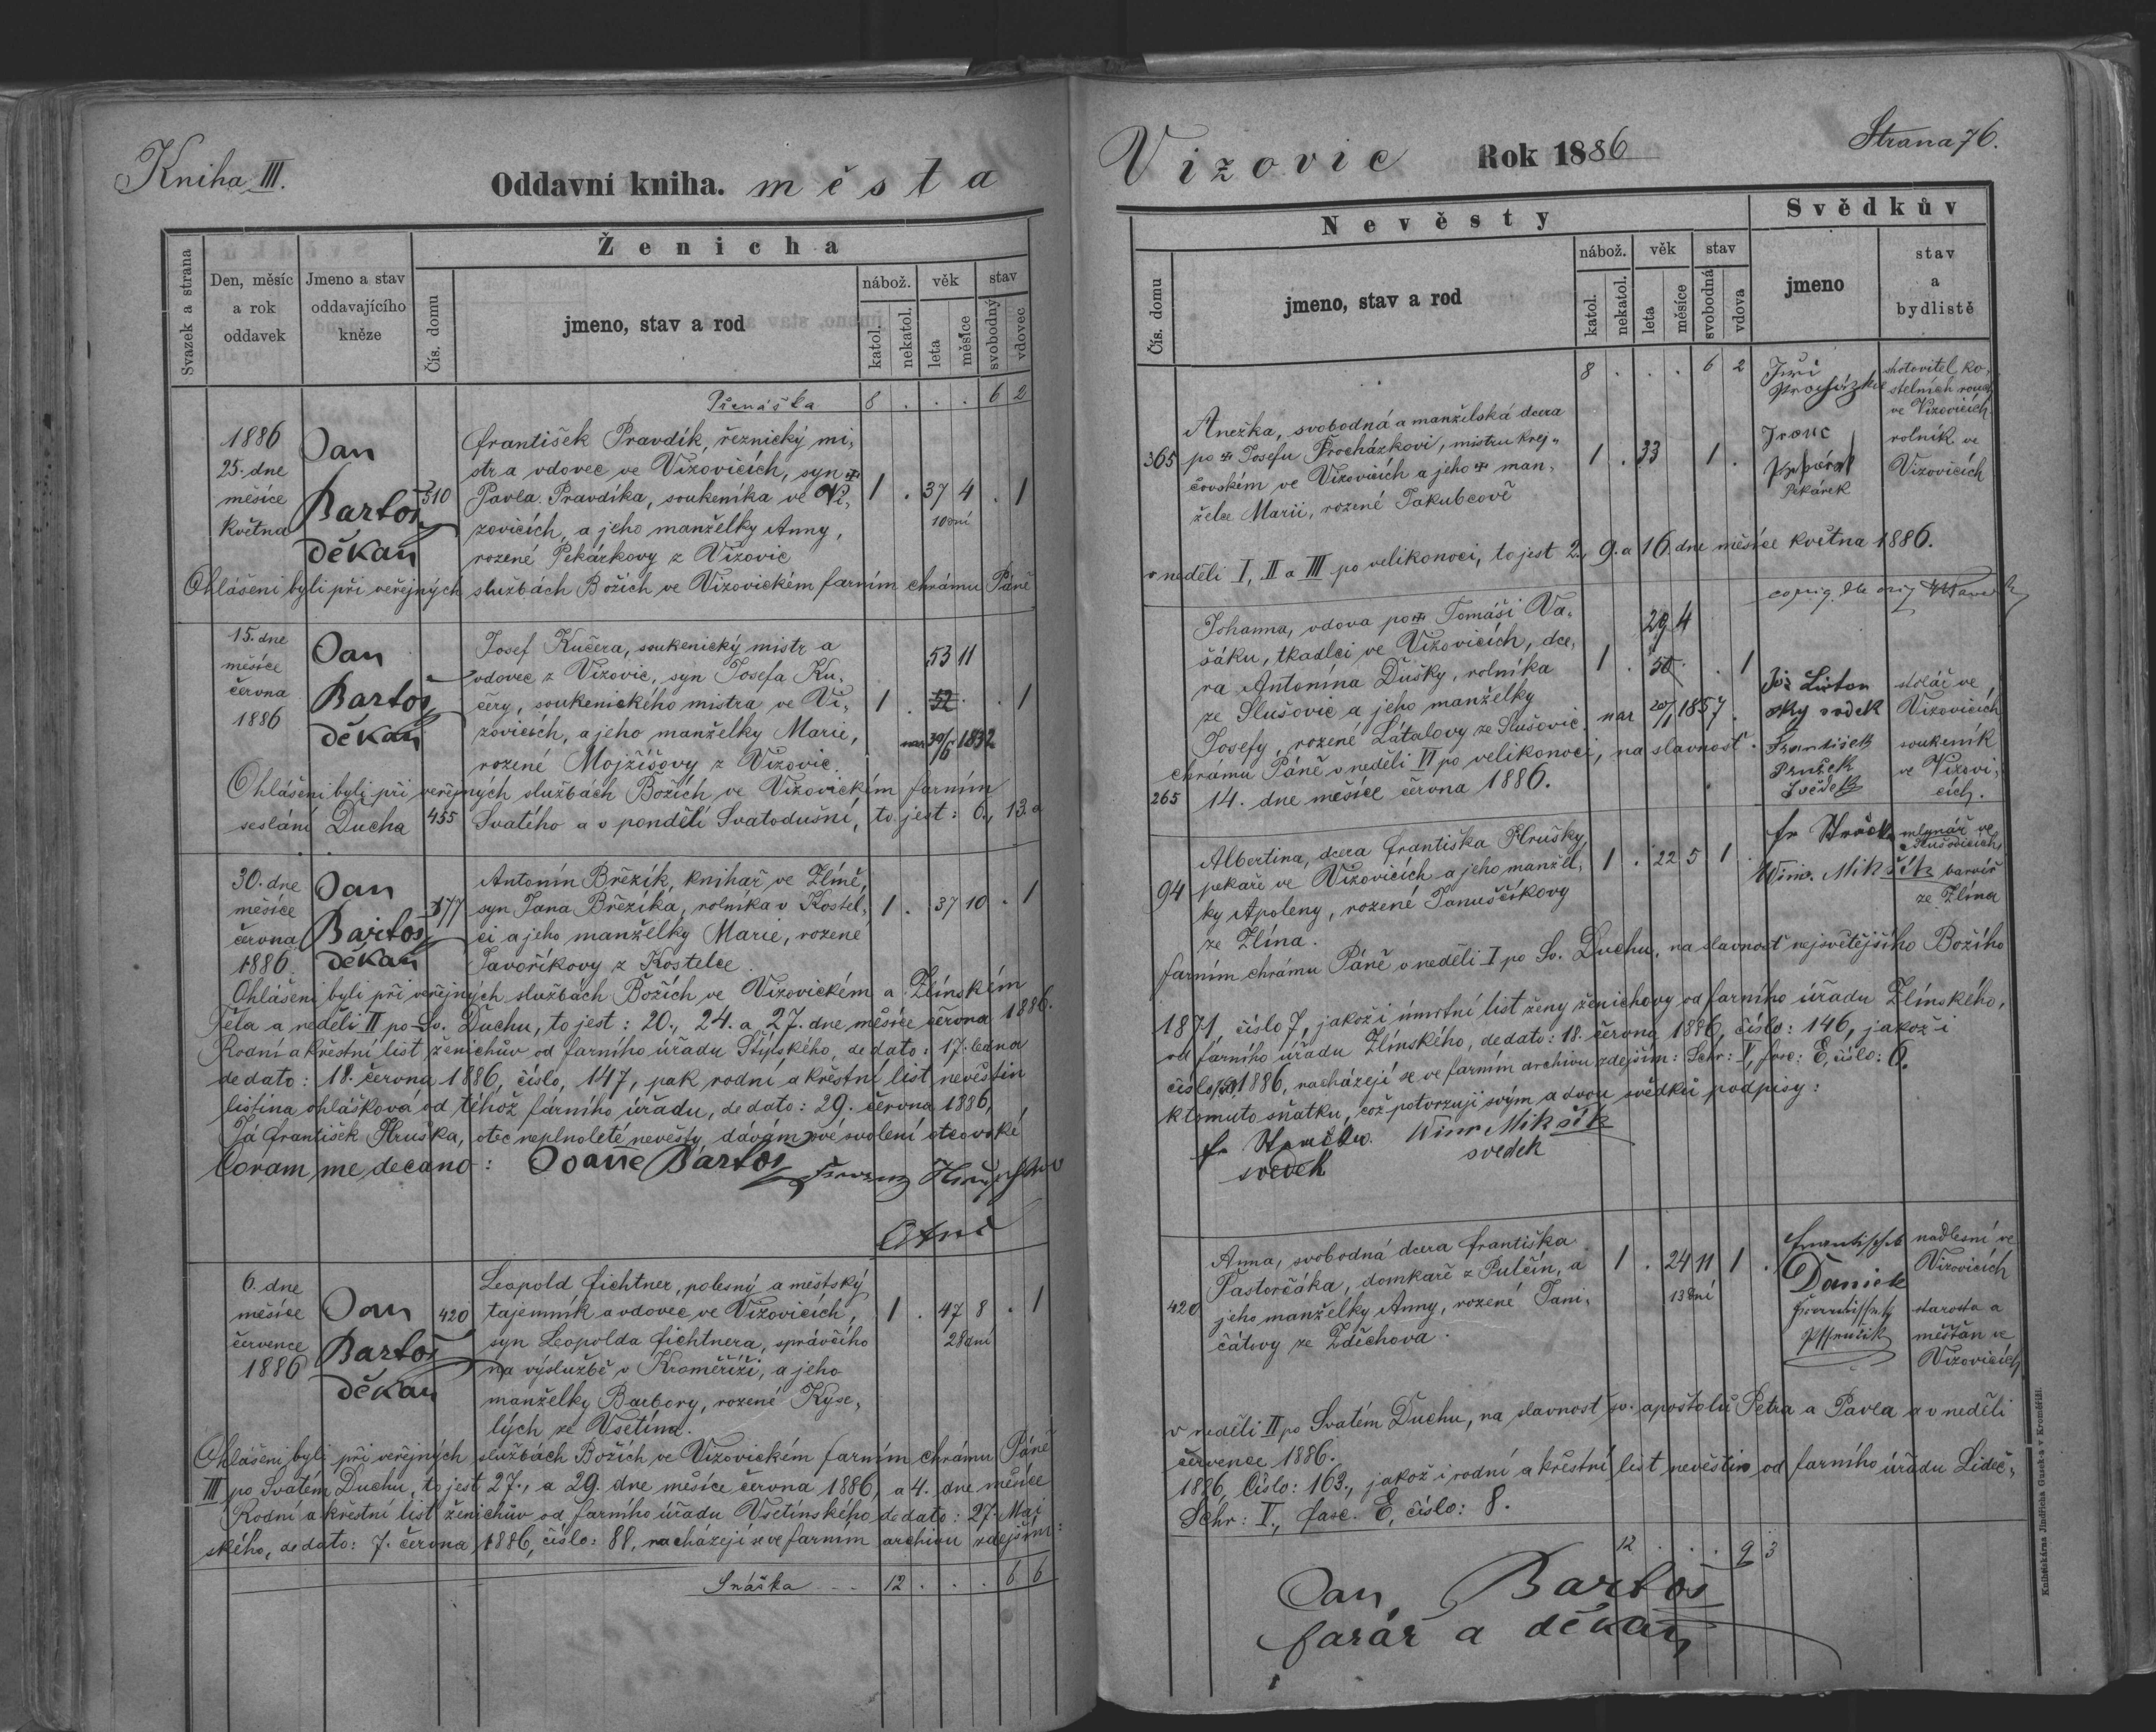 Kniha III.
Oddavní kniha. města
Svazek a strana
Den, měsíc
a rok
oddavek
Jmeno a stav
oddavajícího
kněze
Ženicha
Čís. domu
jmeno, stav a rod
nábož.
věk
stav
katol.
nekatol.
leta
měsíce
svobodný
vdovec
Přenáška 8 . . . 6 2
1886
25. dne
měsíce
května
Jan
Bartoš
děkan
310
František Pravdík, řeznický mi-
str a vdovec ve Vizovicích, syn ✝
Pavla Pravdíka, soukeníka ve Vi-
zovicích, a jeho manželky Anny,
rozené Pekárkovy z Vizovic
1 . 37 4 . 1
10 dní
Ohlášeni byli při veřejných službách Božích ve Vizovickém farním chrámu Páně
15. dne
měsíce
června
1886
Jan
Bartoš
děkan
Josef Kučera, soukenický mistr a
vdovec z Vizovic, syn Josefa Ku-
čery, soukenického mistra ve Vi-
zovicích, a jeho manželky Marie,
rozené Mojžíšovy z Vizovic.
53 11
1 . 52 . . 1
nar 30/6 1832
Ohlášeni byli při veřejných službách Božích ve Vizovickém farním
seslání Ducha 455 Svatého a v pondělí Svatodušní, to jest: 6., 13. a
30. dne
měsíce
června
1886.
Jan
Bartoš
děkan
377
Antonín Březík, knihař ve Zlíně,
syn Jana Březíka, rolníka v Kostel-
ci a jeho manželky Marie, rozené
Javoříkovy z Kostelce.
1 . 37 10 . 1
Ohlášeni byli při veřejných službách Božích ve Vizovickém a Zlínském
Těla a neděli II po Sv. Duchu, to jest: 20., 24. a 27. dne měsíce června 1886.
Rodní a křestní list ženichův od farního úřadu Štípského, de dato: 17. ledna
de dato: 18. června 1886, číslo, 147, pak rodní a křestní list nevěstin
listina ohlášková od téhož farního úřadu, de dato: 29. června 1886,
Já František Hruška, otec neplnoleté nevěsty dávám své svolení otcovské
Coram me decano: Joanne Bartoš
6. dne
měsíce
července
1886
Jan
Bartoš
děkan
420
Leopold Fichtner, polesný a městský
tajemník a vdovec ve Vizovicích,
syn Leopolda Fichtnera, správčího
na výslužbě v Kroměříži, a jeho
manželky Barbory, rozené Kyse-
lých ze Vsetína.
1 . 47 8 . 1
28 dní
Ohlášeni byli při veřejných službách Božích ve Vizovickém farním chrámu Páně
III po Svatém Duchu, to jest 27., a 29. dne měsíce června 1886, a 4. dne měsíce
Rodní a křestní list ženichův od farního úřadu Vsetínského de dato: 27. Mai
ského, de dato: 7. června 1886, číslo: 88, nacházejí se ve farním archivu zdejším:
Snáška 12 . . . 6 6
Vizovic Rok 1886
Strana 76.
Nevěsty
Svědkův
Čís. domu
jmeno, stav a rod
nábož.
věk
stav
katol.
nekatol.
leta
měsíce
svobodná
vdova
jmeno
stav
a
bydlistě
8 . . . 6 2
365
Anežka, svobodná a manželská dcera
po ✝ Josefu Procházkovi, mistru krej-
čovském ve Vizovicích a jeho ✝ man-
želce Marii, rozené Jakubcově
1 . 33 1 .
Jiří
Procházka
zhotovitel ko-
stelních rouch
ve Vizovicích
Pekárek
rolník ve
Vizovicích
v neděli I, II a III po velikonoci, to jest 2., 9. a 16. dne měsíce května 1886.
Johanna, vdova po ✝ Tomáši Va-
šáku, tkadlci ve Vizovicích, dce-
ra Antonína Dušky, rolníka
ze Slušovic a jeho manželky
Josefy, rozené Látalovy ze Slušovic.
29 4
1 . . 1
nar 20/1 1857
stolář ve
Vizovicích
František
Pružek
svědek
soukeník
ve Vizovi-
cích.
chrámu Páně v neděli VI po velikonoci, na slavnost
265 14. dne měsíce června 1886.
94
Albertina, dcera Františka Hrušky,
pekaře ve Vizovicích a jeho manžel-
ky Apoleny, rozené Januščíkovy
ze Zlína.
1 . 22 5 1 .
mlynář ve
Slušovicích
Mikšík barvíř
ze Zlína
farním chrámu Páně v neděli I po Sv. Duchu, na slavnost nejsvětějšího Božího
1871, číslo 7, jakož i úmrtní list ženy ženichovy od farního úřadu Zlínského,
od farního úřadu Zlínského, de dato: 18. června 1886, číslo: 146, jakož i
číslo, 1886, nacházejí se ve farním archivu zdejším: Schr: V, fasc: E, číslo: 6.
k tomuto sňatku, což potvrzuji svým a dvou svědků podpisy:
Mikšík
svedek
svedek
420
Anna, svobodná dcera Františka
Pastorčáka, domkaře z Pulčín, a
jeho manželky Anny, rozené Jani-
čátovy ze Zděchova.
1 . 24 11 1 .
13 dní
Daniek
nadlesní ve
Vizovicích
starosta a
měšťan ve
Vizovicích
v neděli II po Svatém Duchu, na slavnost sv. apoštolů Petra a Pavla a v neděli
července 1886.
1886, Číslo: 163., jakož i rodní a křestní list nevěstin od farního úřadu Lideč-
Schr: V., fasc. E, číslo: 8.
12 . . . 9 3
Jan Bartoš
farář a děkan
Knihtiskárna Jindřicha Guseka v Kroměříži.